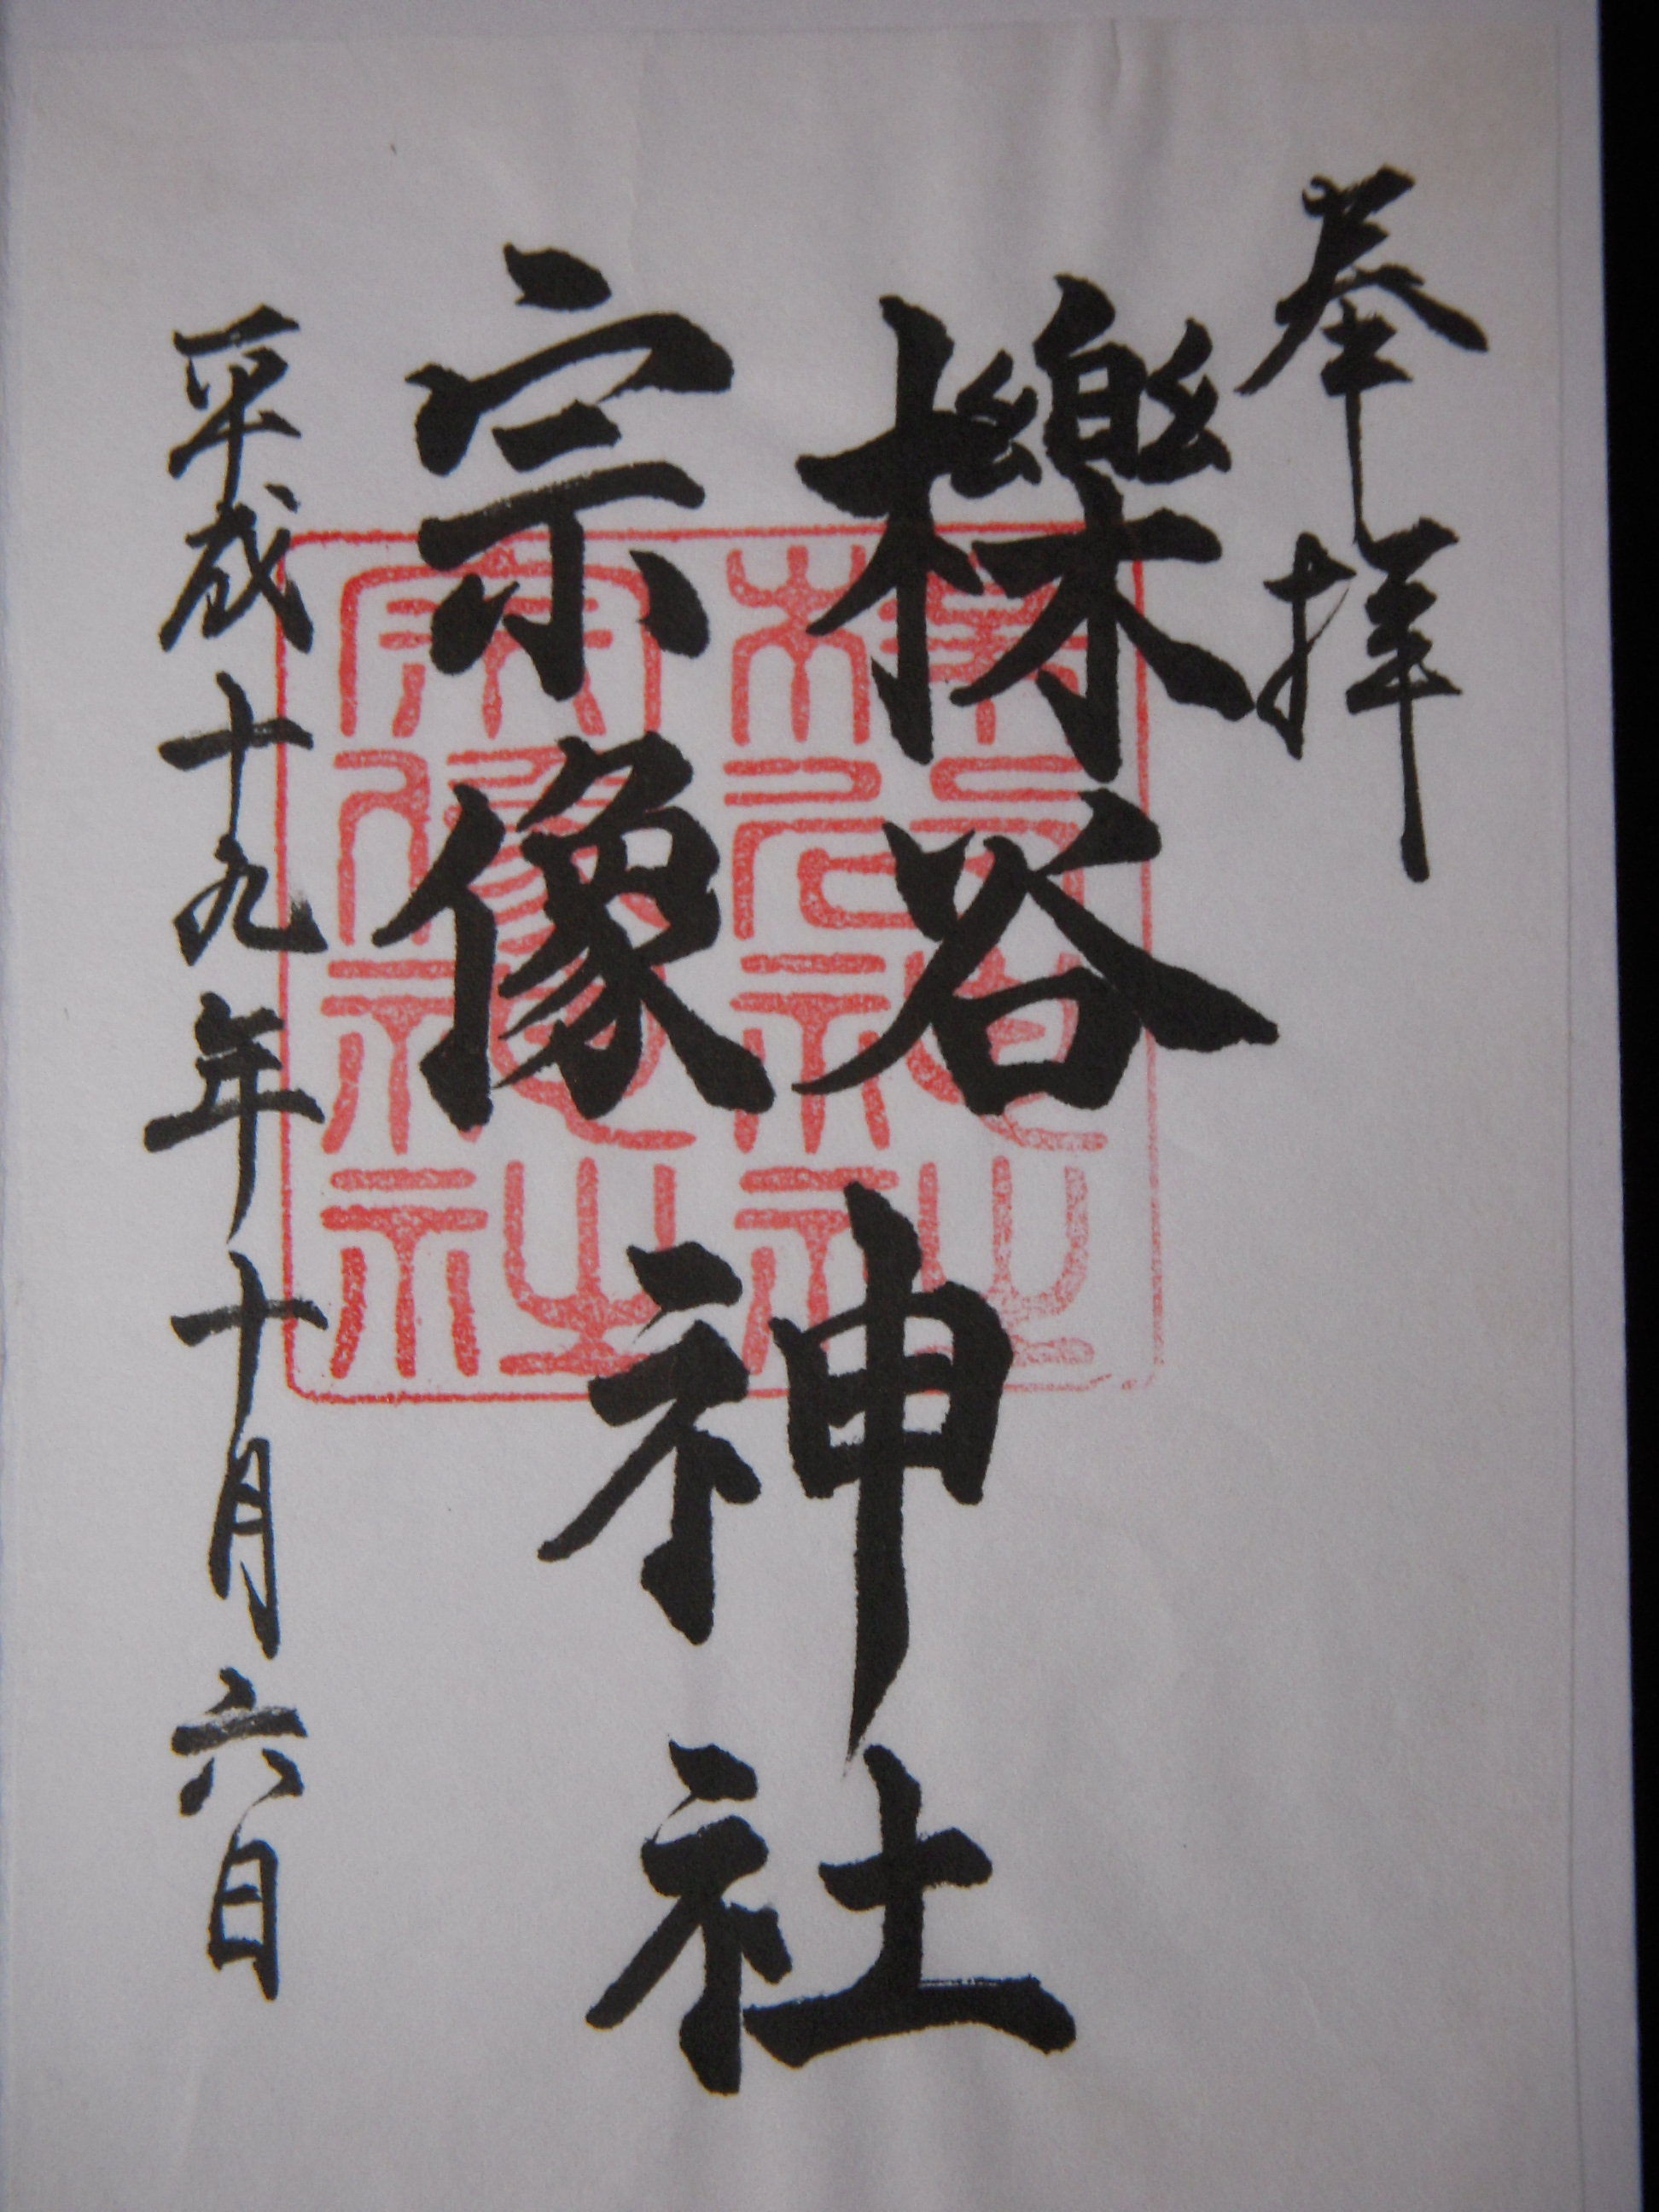 奉拝
櫟谷
宗像
神社
平成十九年十月六日
櫟谷神社
宗像神社